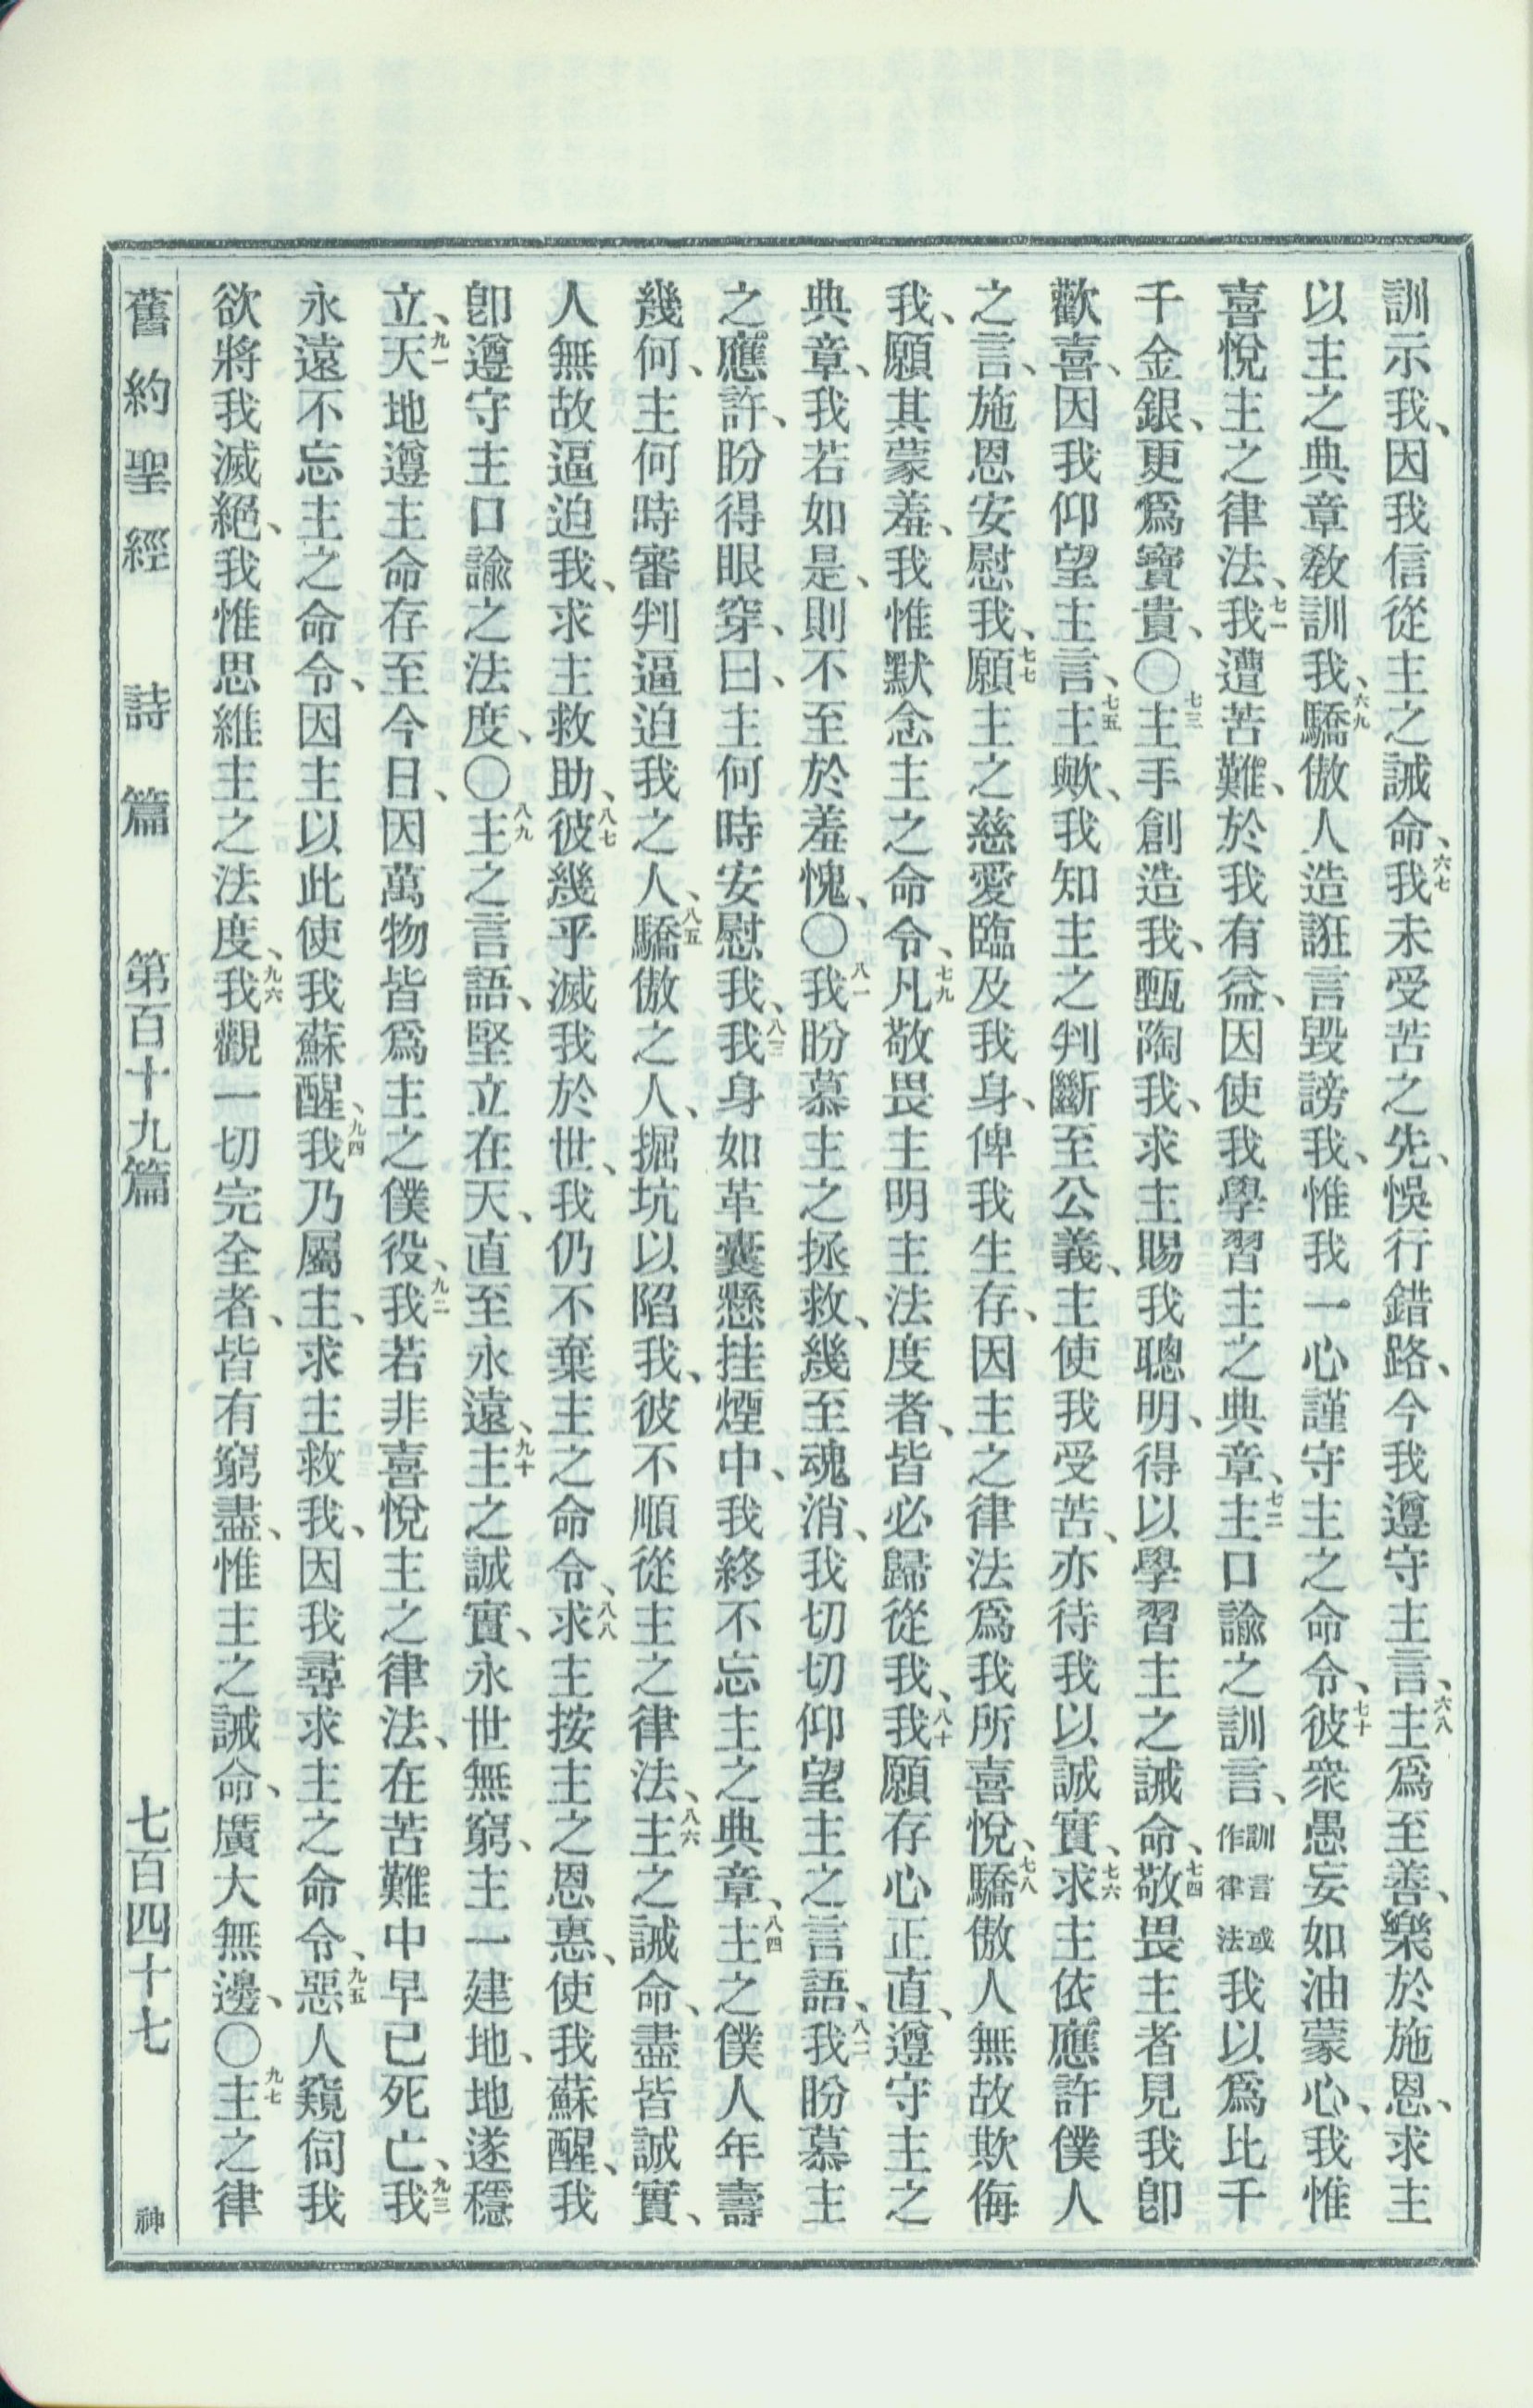 訓示我、因我信從主之誡命、六七我未受苦之先、悞行錯路、今我遵守主言、六八主爲至善、樂於施恩、求主
以主之典章教訓我、六九驕傲人造誑言毀謗我、惟我一心謹守主之命令、七十彼衆愚妄如油蒙心、我惟
喜悅主之律法、七一我遭苦難、於我有益、因使我學習主之典章、七二主口諭之訓言、訓言或作律法我以爲比千
千金銀、更爲寶貴、〇七三主手創造我、甄陶我、求主賜我聰明、得以學習主之誡命、七四敬畏主者見我卽
歡喜、因我仰望主言、七五主歟、我知主之判斷至公義、主使我受苦、亦待我以誠實、七六求主依應許僕人
之言、施恩安慰我、七七願主之慈愛臨及我身、俾我生存、因主之律法爲我所喜悅、七八驕傲人無故欺侮
我、願其蒙羞、我惟默念主之命令、七九凡敬畏主明主法度者、皆必歸從我、八十我願存心正直、遵守主之
典章、我若如是、則不至於羞愧、〇八一我盼慕主之拯救、幾至魂消、我切切仰望主之言語、八二我盼慕主
之應許、盼得眼穿、曰、主何時安慰我、八三我身如革囊懸挂煙中、我終不忘主之典章、八四主之僕人年壽
幾何、主何時審判逼迫我之人、八五驕傲之人、掘坑以陷我、彼不順從主之律法、八六主之誡命、盡皆誠實、
人無故逼迫我、求主救助、八七彼幾乎滅我於世、我仍不棄主之命令、八八求主按主之恩惠、使我蘇醒、我
卽遵守主口諭之法度、〇八九主之言語、堅立在天、直至永遠、九十主之誠實、永世無窮、主一建地、地遂穩
立、九一天地遵主命存至今日、因萬物皆爲主之僕役、九二我若非喜悅主之律法、在苦難中早已死亡、九三我
永遠不忘主之命令、因主以此使我蘇醒、九四我乃屬主、求主救我、因我尋求主之命令、九五惡人窺伺我
欲將我滅絕、我惟思維主之法度、九六我觀一切完全者、皆有窮盡、惟主之誡命、廣大無邊、〇九七主之律
舊約聖經 詩篇 第百十九篇 七百四十七 神